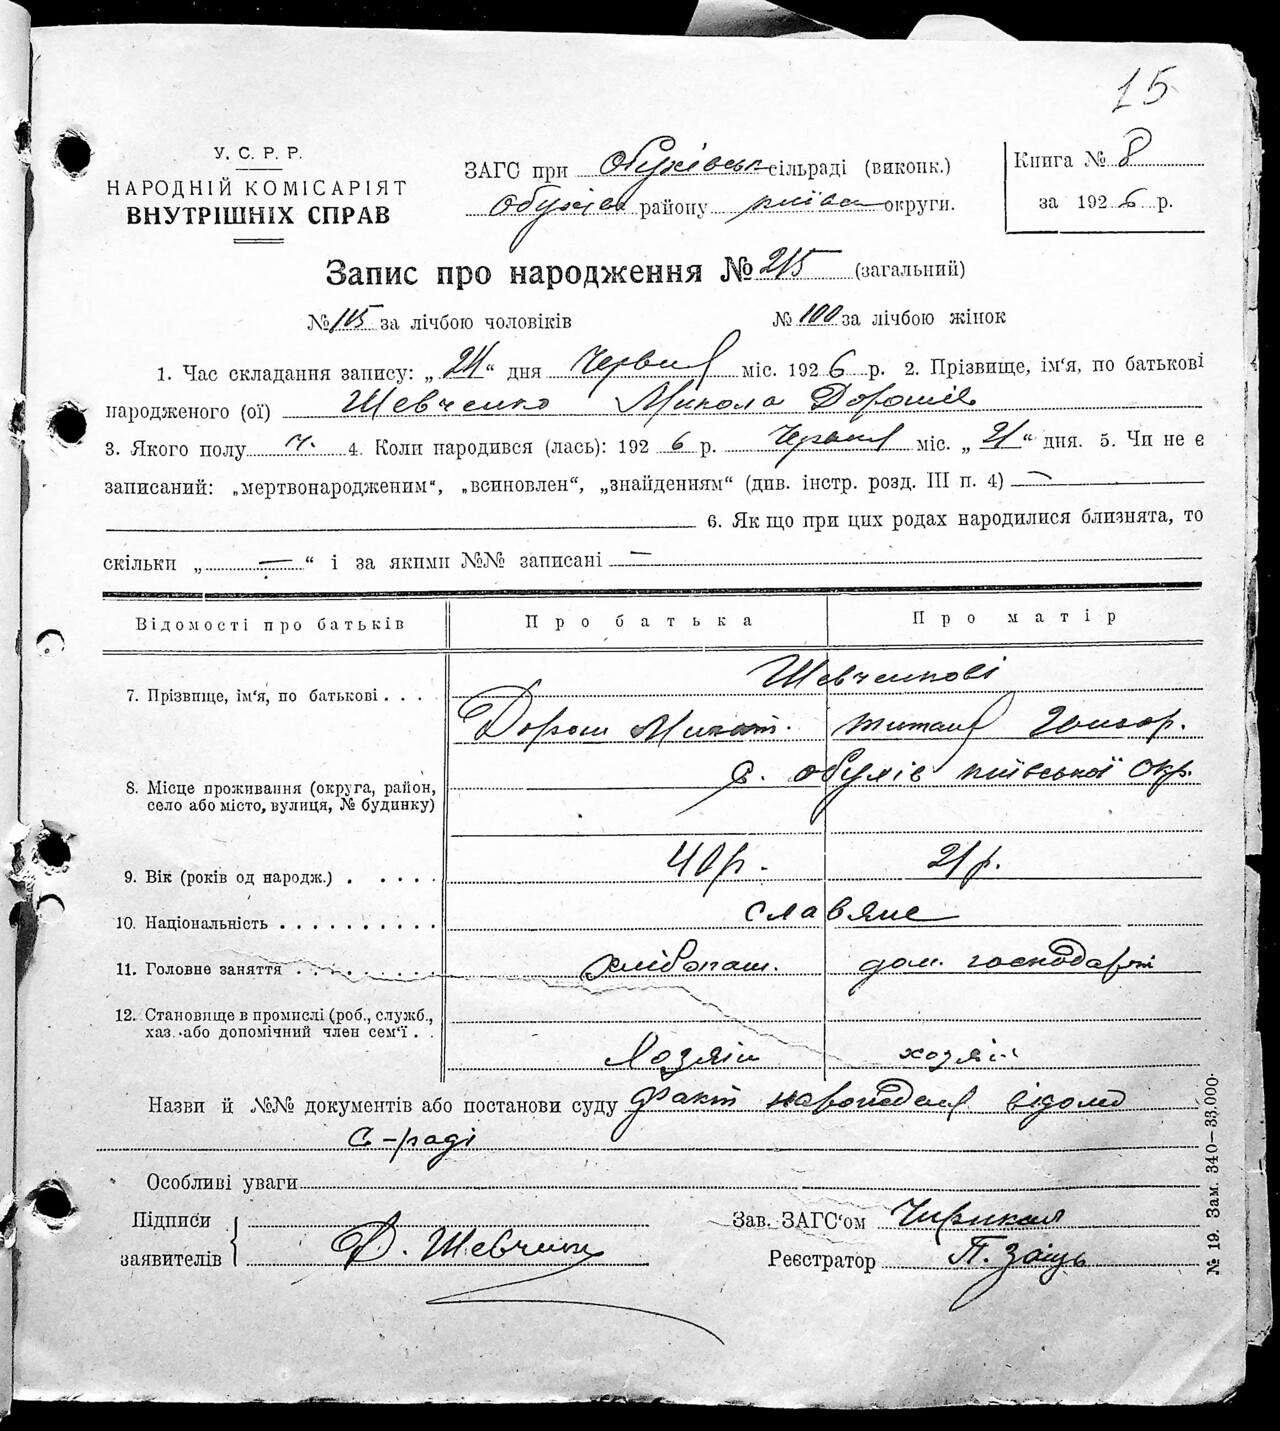 15
У. С. Р. Р.
НАРОДНІЙ КОМІСАРІЯТ
ВНУТРІШНІХ СПРАВ
ЗАГС при Обухівськ сільраді (виконк.)
Обухів району київськ округи.
Книга № 8
за 1926 р.
Запис про народження № 215 (загальний)
№ 115 за лічбою чоловіків № 100 за лічбою жінок
1. Час складання запису: „ 24 “ дня Червня міс. 1926 р. 2. Прізвище, ім‘я, по батькові
народженого (ої) Шевченко Микола Дорошів
3. Якого полу ч. 4. Коли народився (лась): 1926 р. Червня міс. „ 21 “ дня. 5. Чи не є
записаний: „мертвонародженим“, „всиновлен“, „знайденням“ (див. інстр. розд. III п. 4) —
6. Як що при цих родах народилися близнята, то
скільки „ — “ і за якими №№ записані —
Відомості про батьків Про батька Про матір
Шевченкові
7. Прізвище, ім‘я, по батькові . . .
Дорош Микит. Титяна Григор.
с. Обухів Київської Окр.
8. Місце проживання (округа, район,
село або місто, вулиця, № будинку)
9. Вік (років од народж.) . . . . . 40 р. 21 р.
10. Національність . . . . . . . . . . славяне
11. Головне заняття . . . . . . . . . хлібопаш. дом. господарст
12. Становище в промислі (роб., служб.,
хаз. або допомічний член сем‘ї . .
Хозяїн хозяй
Назви й №№ документів або постанови суду Факт народження відомо
с-раді
Особливі уваги
Підписи
заявителів
Д. Шевченко
Зав. ЗАГС‘ом
Реєстратор П. Заіць
№ 19. Зам. 340—33.000.